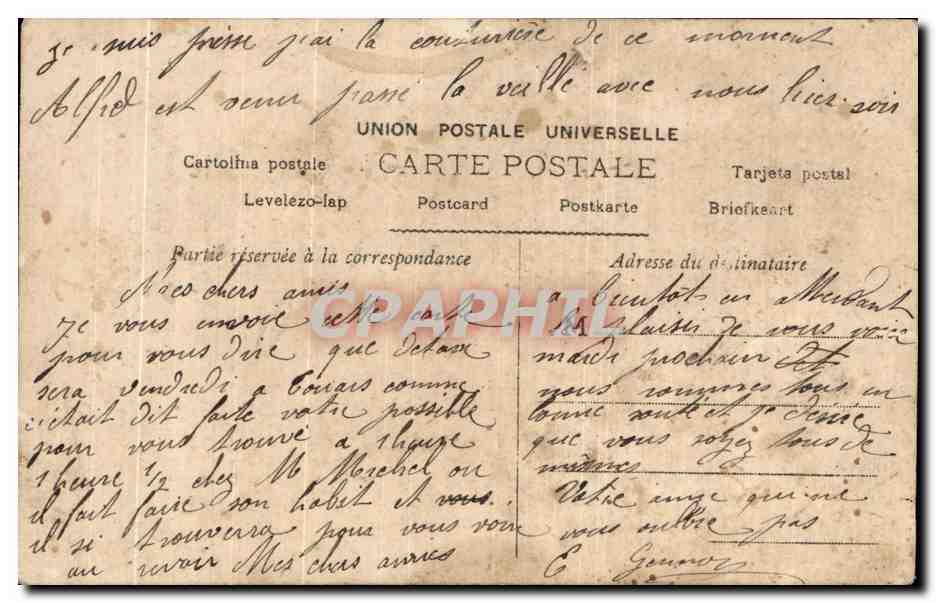 je suis pressé j'ai la couturière de ce moment
Alfred est venu passé la veillé avec nous hier soir
UNION POSTALE UNIVERSELLE
CARTE POSTALE
Cartolina postale
Tarjeta postal
Levelezo-lap
Postcard
Postkarte
Briefkaart
Partie réservée à la correspondance
Adresse du destinataire
Mes chers amis
Je vous envoie cette carte
pour vous dire que
sera vendredi a Touars comme
c'était dit faite votre possible
pour vous trouvé a 1 heure
1 heure 1/2 chez M Michel ou
il fait faire son habit et vous
il si trouverra pour vous voir
au revoir Mes chers amies
a bientôts en attendant
M
le plaisir de vous voir
mardi prochain et
nous sommes tous en
bonne santé et je désire
que vous soyez tous de
mêmes
Votre amie qui ne
vous oublie pas
E
CPAPHIL